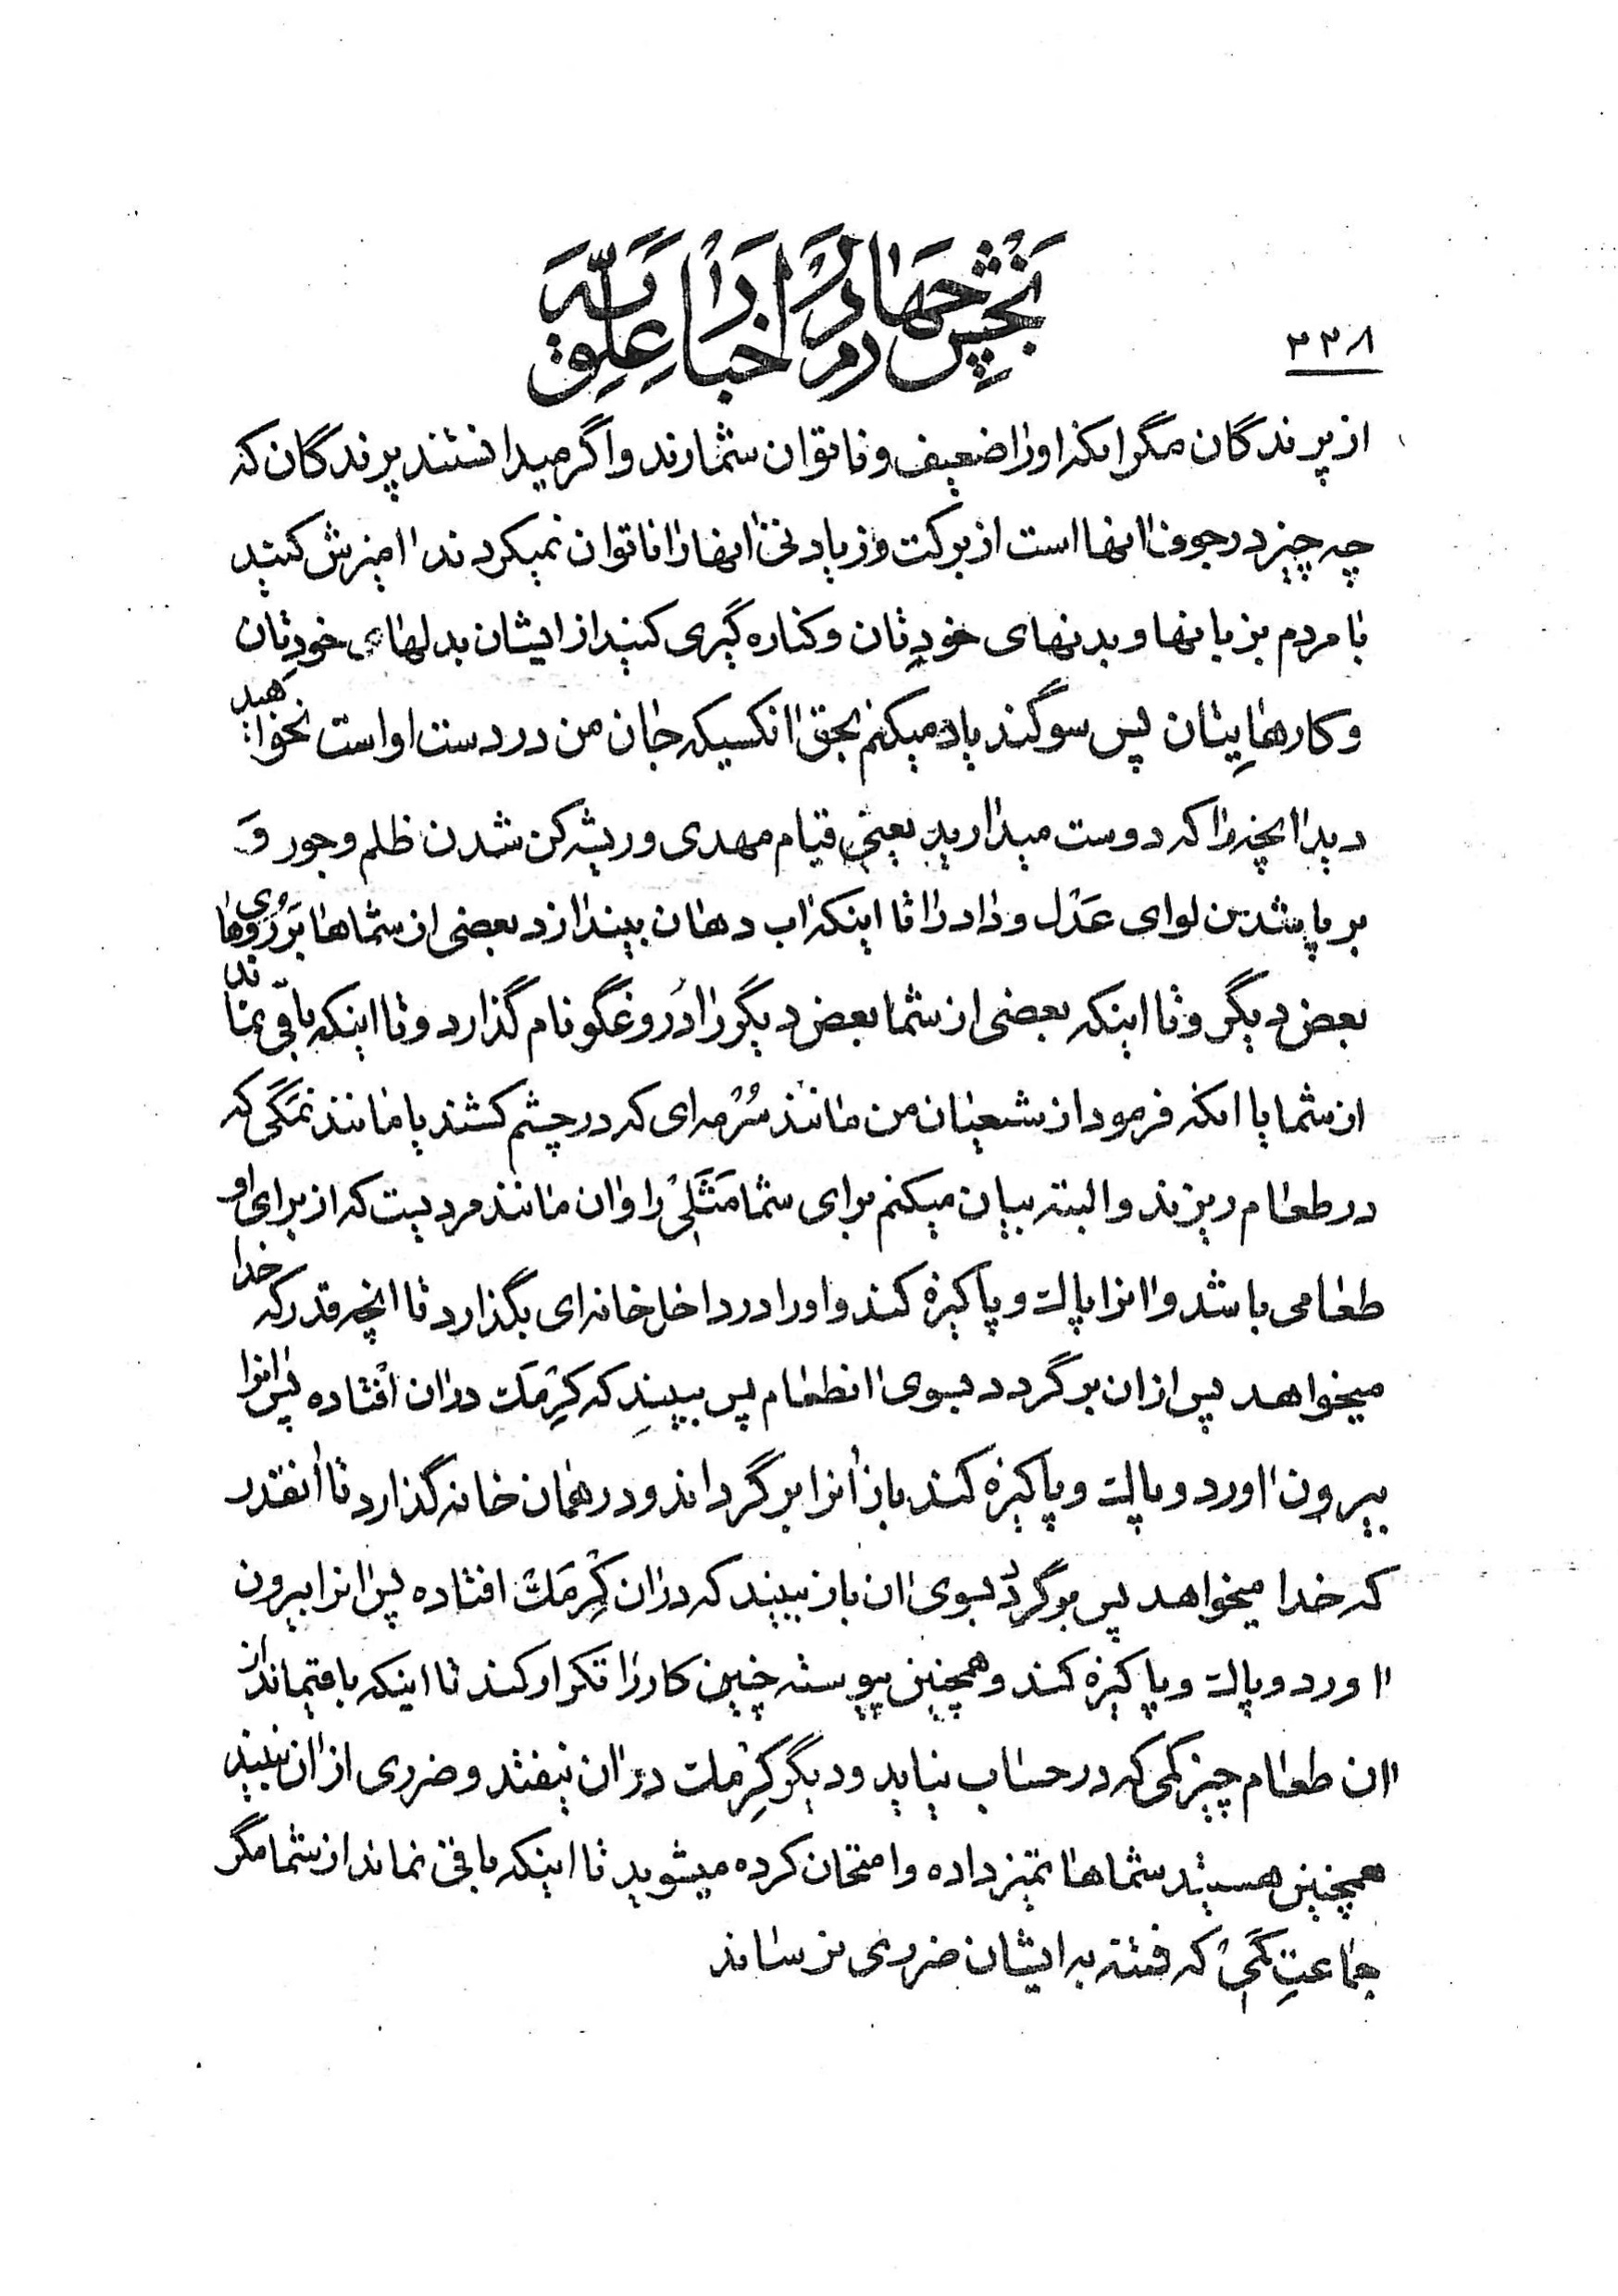 بخش چهارم در اخبار علویّه
۳۳۸
از پرندگان مگر انکه اورا ضعیف و ناتوان شمارند و اگر میدانستند پرندگان که
چه چیز در جوف انها است از برکت و زیادتی انهارا ناتوان نمیکردند امیزش کنید
با مردم بزبانها و بدنهای خودتان و کناره گیری کنید از ایشان بدلهای خودتان
و کارهایتان پس سوگند یاد میکنم بحق انکسیکه جان من در دست او است نخواهید
دید انچه را که دوست میدارید یعنی قیام مهدی و ریشه کن شدن ظلم و جور وَ
بر پا شدن لوای عَدْل و داد را تا اینکه اب دهان بیندازد بعضی از شماها بَر رُویهای
بعض دیگر و تا اینکه بعضی از شما بعض دیگر را دُروغگو نام گذارد و تا اینکه باقی نماند
از شما یا انکه فرمود از شعیان من مانند سُرْمه ای که در چشم کشند یا مانند نمَکی که
در طعام ریزند و البته بیان میکنم برای شما مَثَلی را و ان مانند مردیست که از برای او
طعامی باشد و انرا پاک و پاکیزه کند و اورا در داخل خانه ای بگذارد تا انچه قدر که خدا
میخواهد پس از ان برگردد بسوی انطعام پس ببیند که کِرْمَک در ان افتاده پس انرا
بیرون اورد و پاک و پاکیزه کند باز انرا برگرداند و در همان خانه گذارد تا انقدر
که خدا میخواهد پس برگردد بسوی ان باز ببیند که در ان کِرْمَک افتاده پس انرا بیرون
اورد و پاک و پاکیزه کند و همچنین پیوسته چنین کار را تکرار کند تا اینکه باقیماند از
ان طعام چیز کمی که در حساب نیاید و دیگر کِرْمک در ان نیفتد و ضرری از ان نبیند
همچنین هستید شماها تمیز داده و امتحان کرده میشوید تا اینکه باقی نماند از شما مگر
جماعتِ کمی که فتنه به ایشان ضرری نرساند